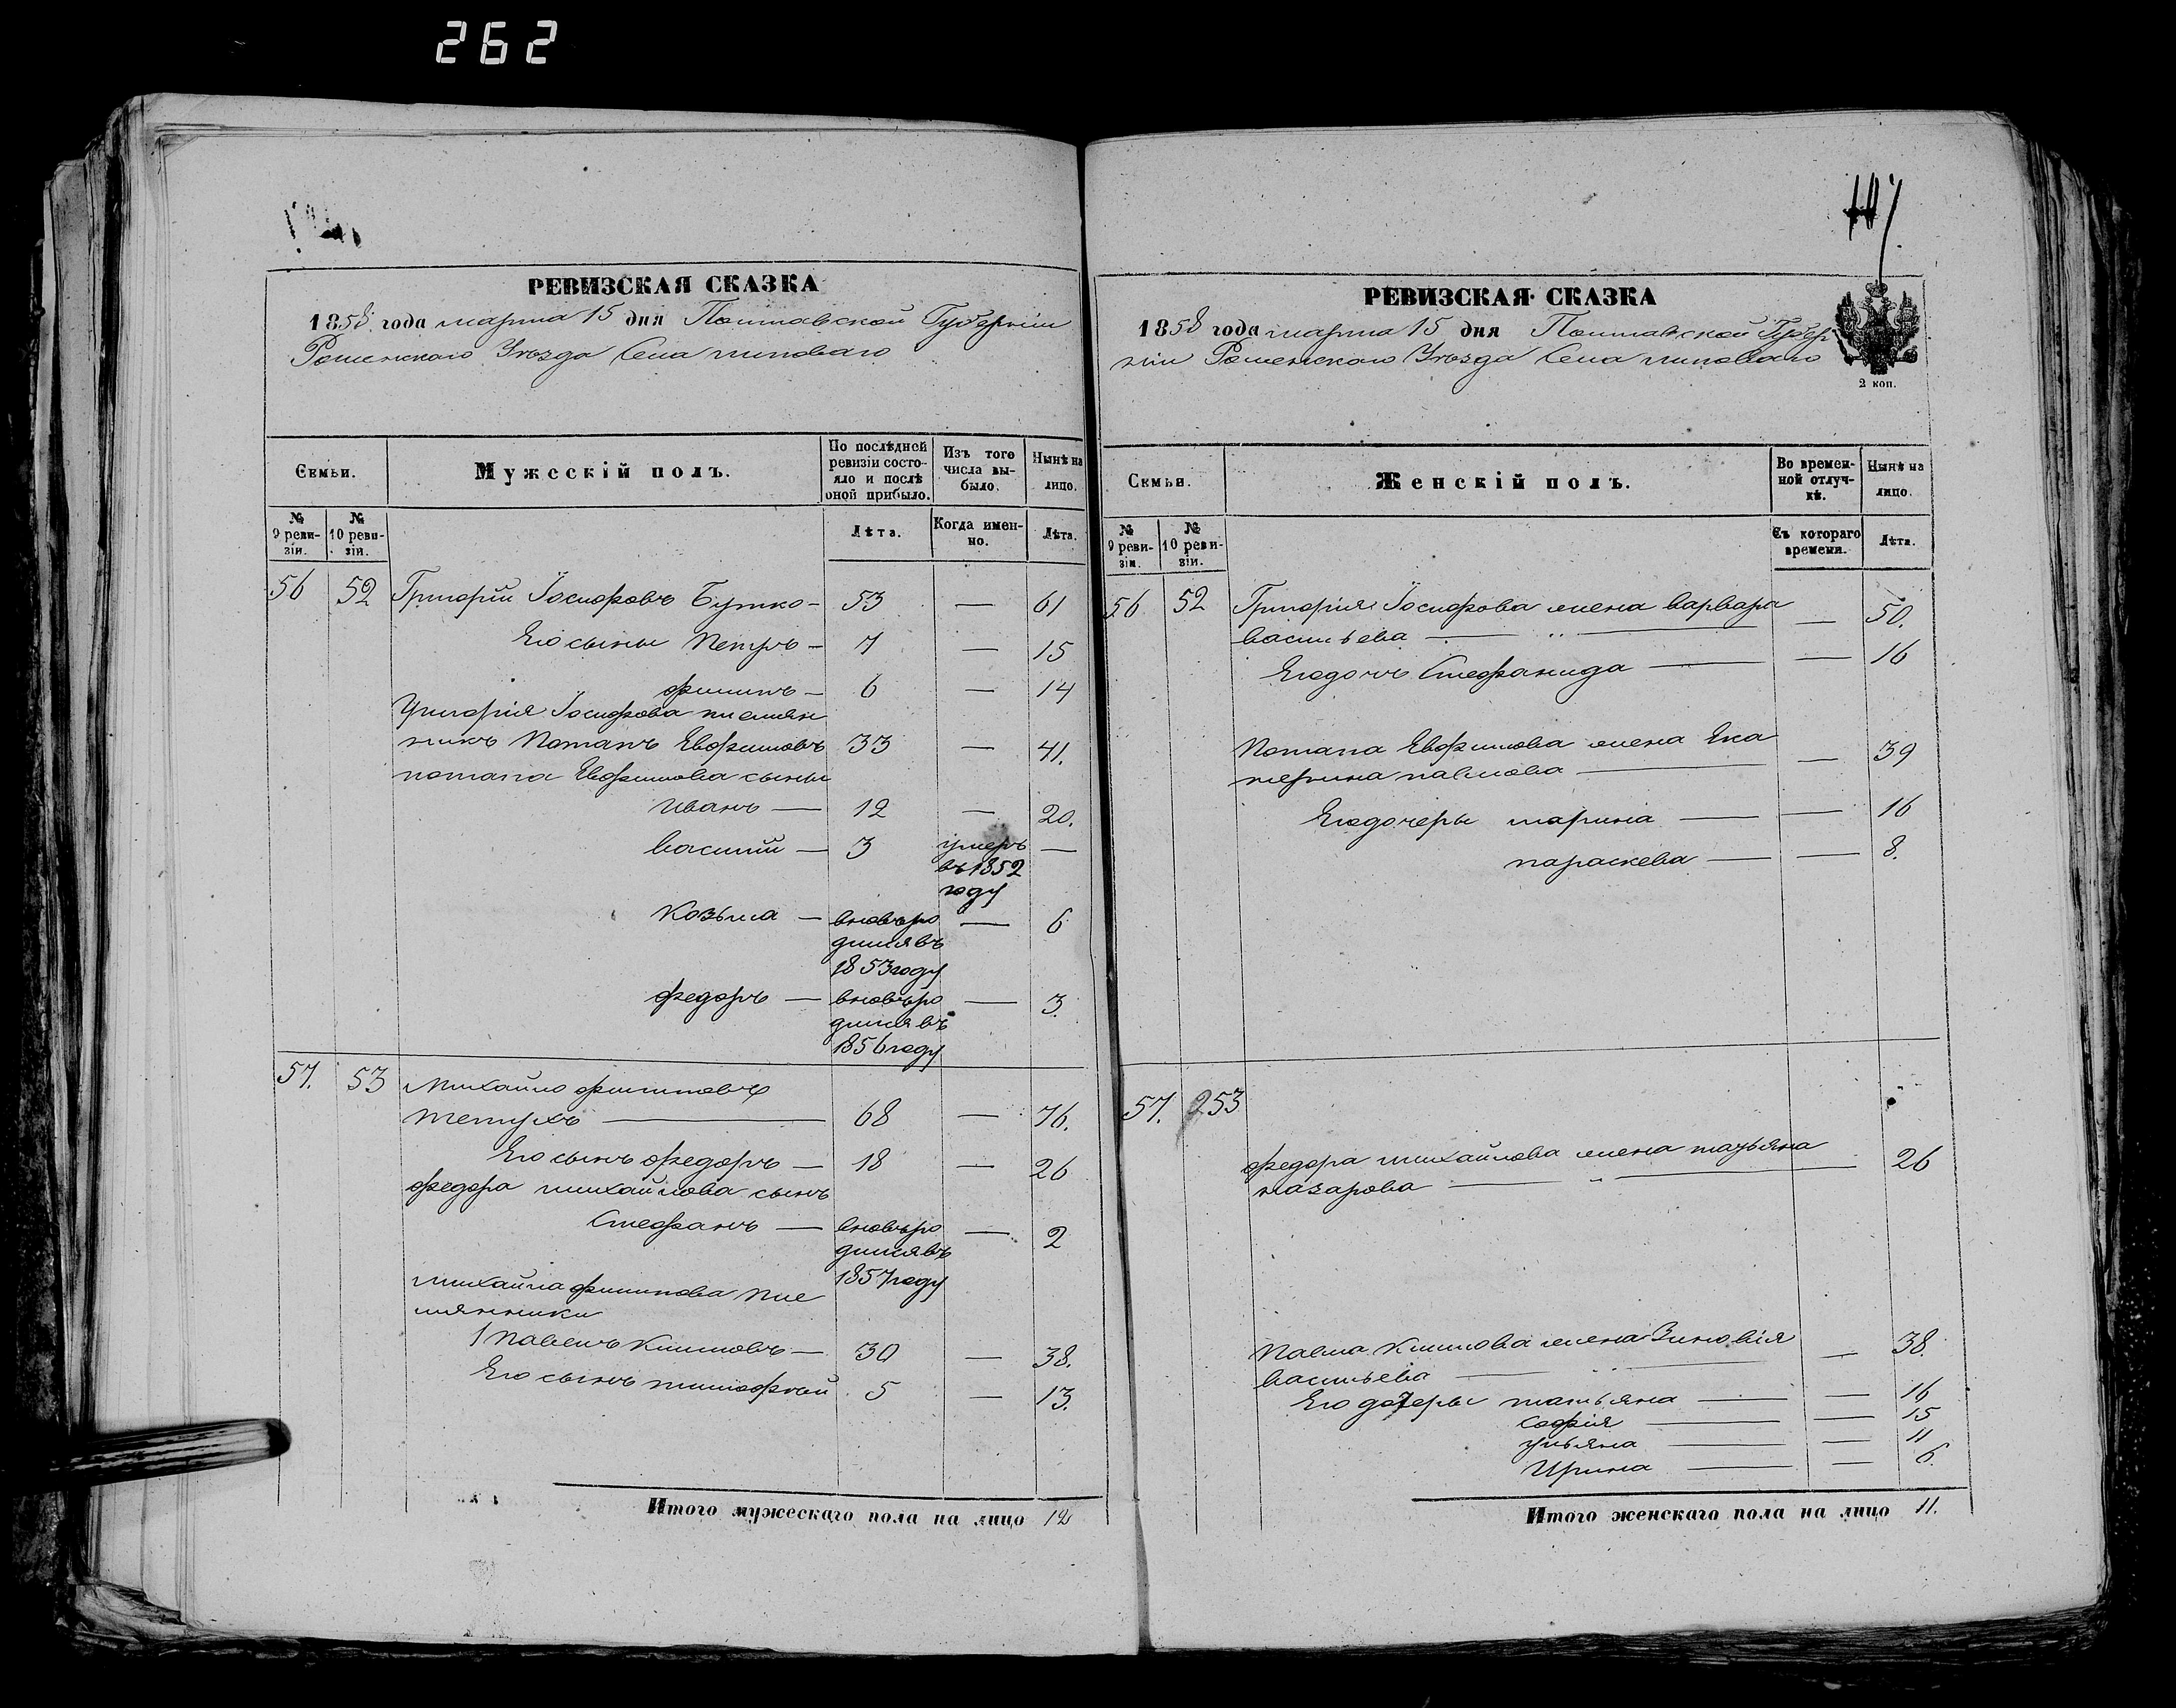 262
РЕВИЗСКАЯ СКАЗКА
1858 года марта 15 дня Полтавской Губерніи
Роменскаго Уѣзда Села липоваго
Семьи.
Мужескій полъ.
По послѣдней ревизіи состояло и послѣ оной прибыло.
Изъ того числа выбыло.
Нынѣ на лицо.
№ 9 ревизіи.
№ 10 ревизіи.
Лѣта.
Когда именно.
Лѣта.
56 52 Григорій Іосифовъ Бутко - 53 — 61
Его сыны Петръ - 7 — 15
филипъ - 6 — 14
Григорія Іосифова племян
никъ Потапъ Евфимовъ 33 — 41.
потапа Евфимова сыны
Иванъ — 12 — 20.
василій — 3 умеръ —
въ 1852
году
Козьма — вновъро — 6
дился въ
1853 году
федоръ — вновъро — 3.
дился въ
1856 году
57. 53 Михайло филиповъ
тетухъ — 68 — 76.
Его сынъ федоръ — 18 — 26
федора михайлова сынъ
Стефанъ — вновъро — 2
дился въ
1857 году
михайла филипова пле
мянники
1 павелъ Климовъ — 30 — 38.
Его сынъ тимофей 5 — 13.
Итого мужескаго пола на лицо 12
РЕВИЗСКАЯ СКАЗКА
1858 года марта 15 дня Полтавской Губер
ніи Роменскаго Уѣзда Села липоваго
2 коп.
Семьи.
Женскій полъ.
Во временной отлучкѣ.
Нынѣ на лицо.
№ 9 ревизіи.
№ 10 ревизіи.
Съ котораго времени.
Лѣта.
56 52 Григорія Іосифова жена варвара
васильева — " — — 50.
Его дочь Стефанида — — 16
Потапа Евфимова жена Ека
терина павлова — — 39
Его дочеры марина — — 16
параскева — — 8.
57. 53
федора михайлова жена татьяна
назарова — " — — 26
Павла Климова жена Зиновія
васильева — " — — 38.
Его дочеры татьяна — — 16
софія — — 15
ульяна — — 11
Ирина — — 6.
Итого женскаго пола на лицо 11.